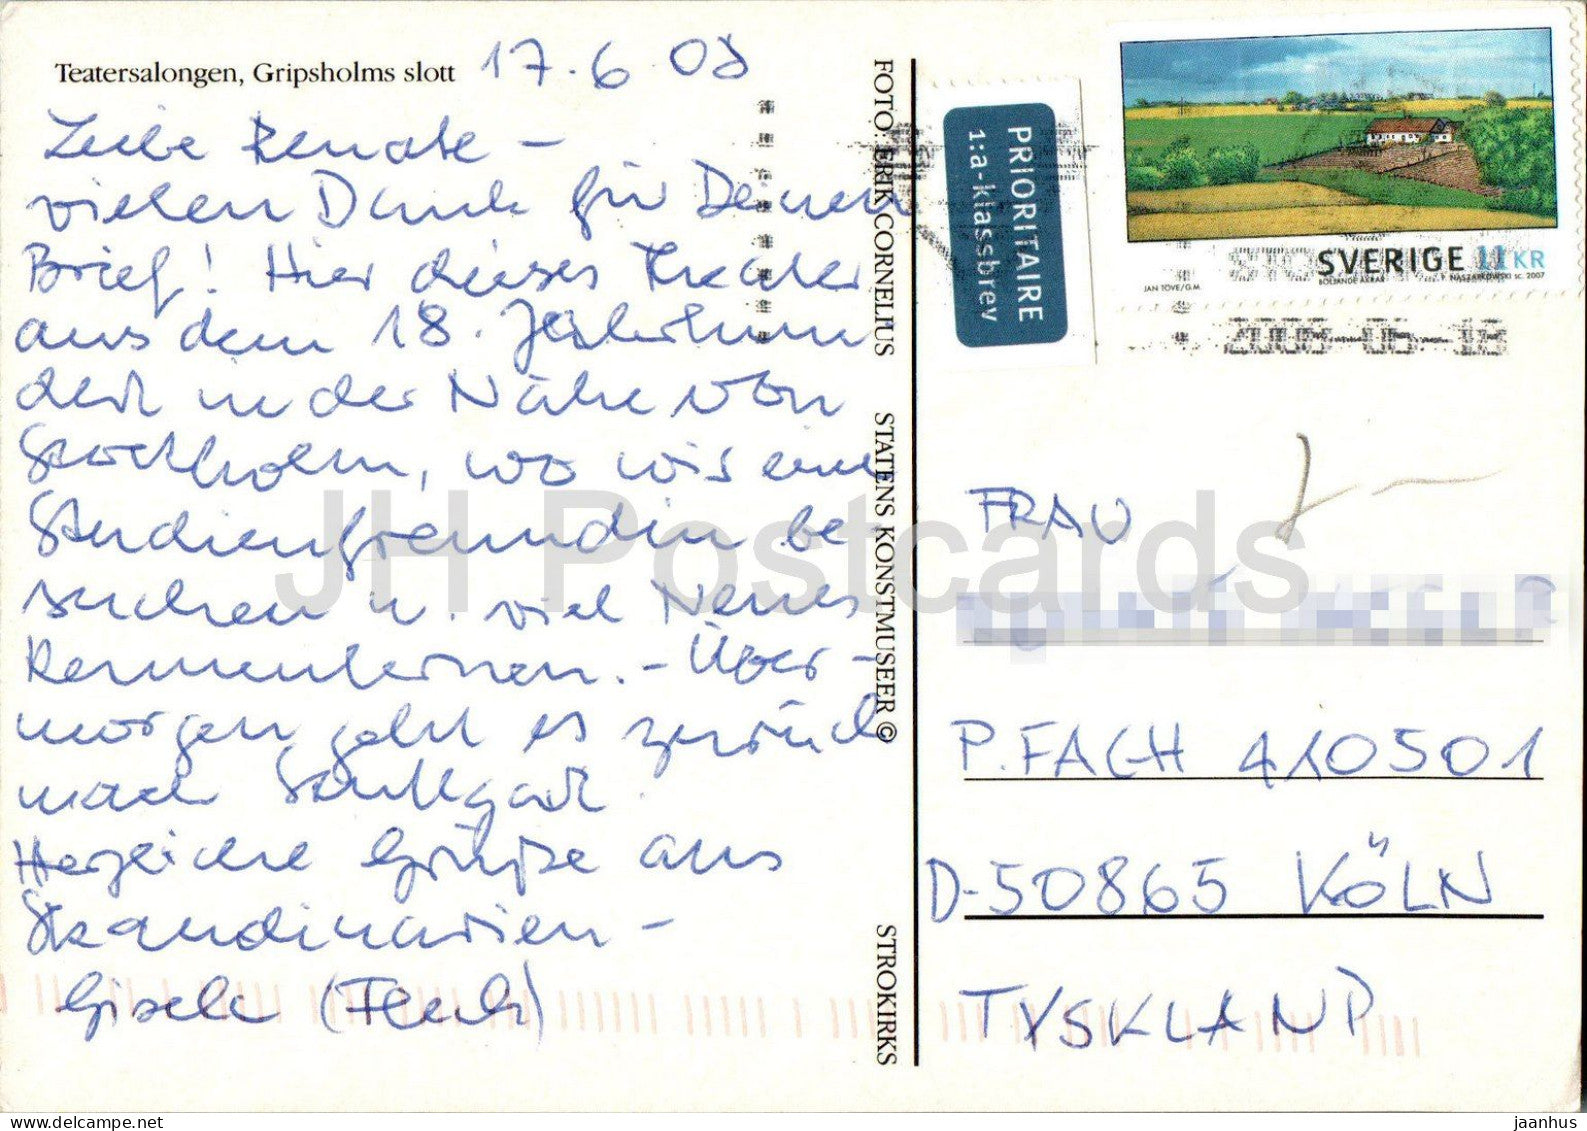 Teatersalongen, Gripsholms slott
17.6 08
Liebe Renate –
vielen Dank für Deinen
Brief! Hier dieses Theater
aus dem 18. Jahrhun
dert in der Nähe von
Stockholm, wo wir eine
Studienfreundin be
suchen u. viel Neues
kennenlernen. – Über-
morgen geht es zurück
nach Stuttgart.
Herzliche Grüße aus
Skandinavien –
Gisela
FOTO: ERIK CORNELIUS STATENS KONSTMUSEER © STROKIRKS
PRIORITAIRE
1:a-klassbrev
SVERIGE 11 KR
JAN TOVE/G.M.
P. NASZARKOWSKI sc. 2007
BÖLJANDE ÅKRAR
2008-06-18
FRAU
P.FACH 410501
D-50865 KÖLN
TYSKLAND
JH Postcards
jaanhus